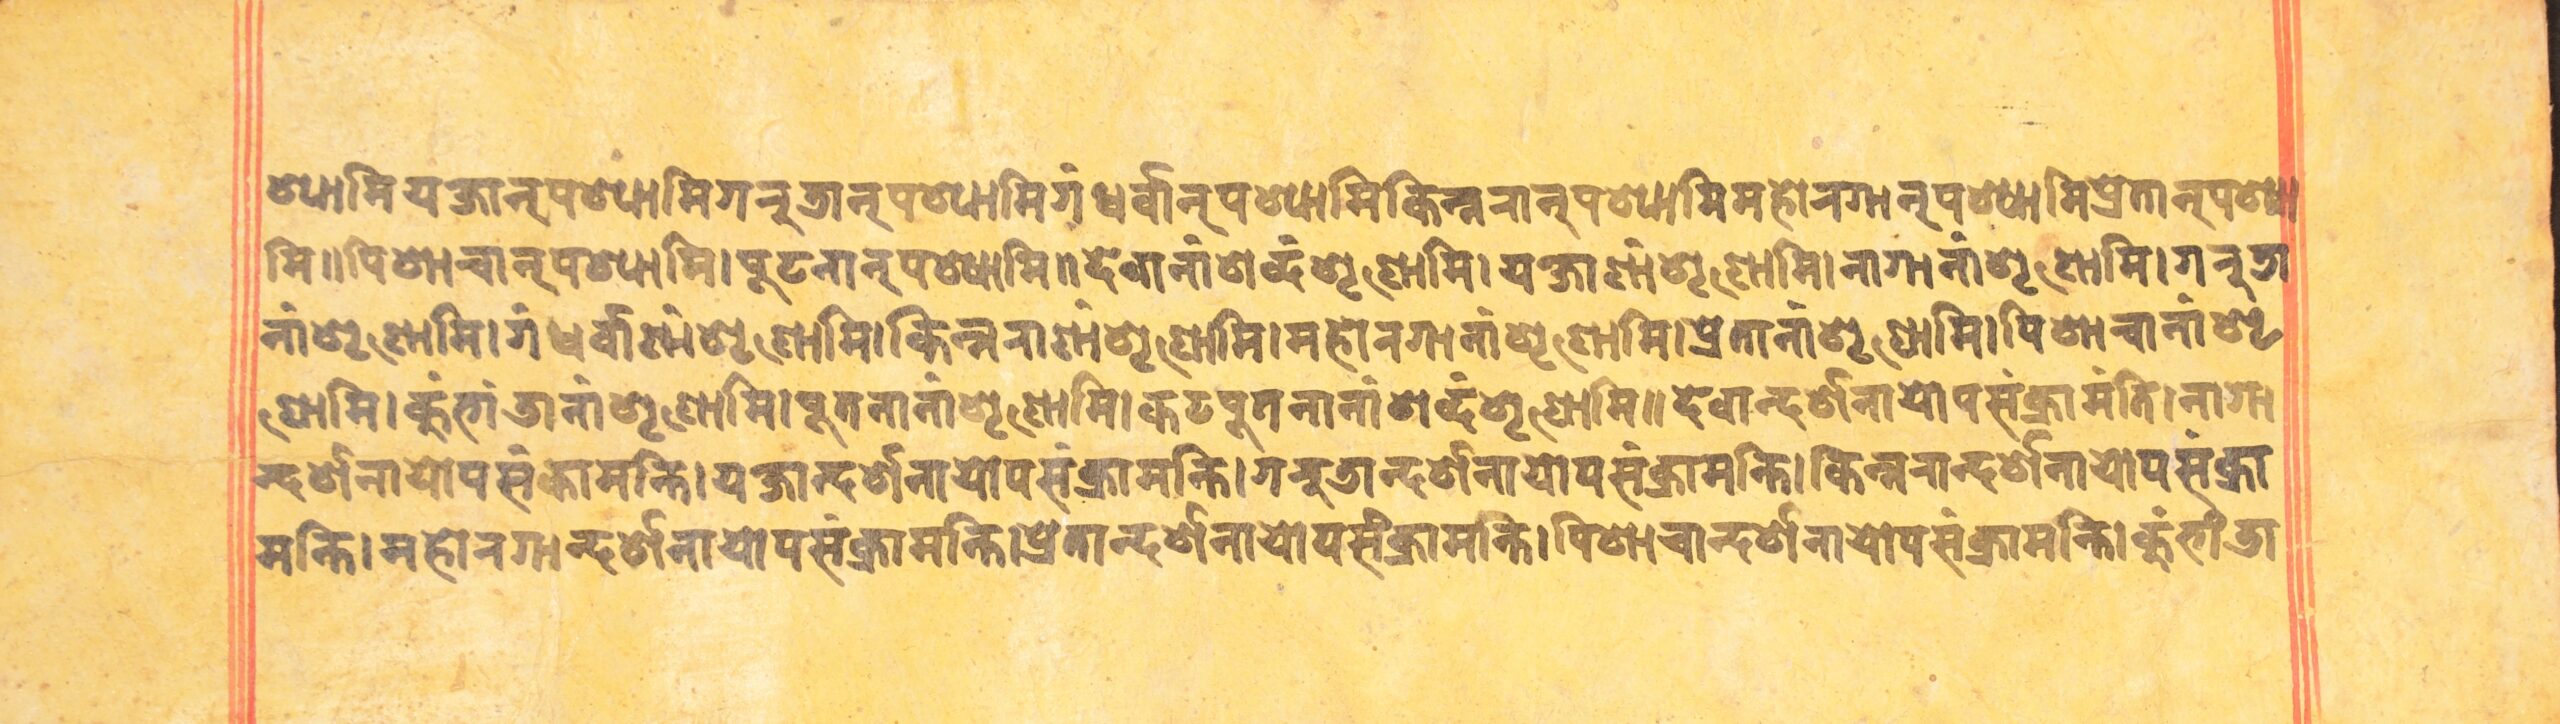 श्यामियक्षान्पश्यामिगरुडान्पश्यामिगंधर्वान्पश्यामिकिन्नरान्पश्यामिमहोरगान्पश्यामिप्रेतान्पश्या
मि॥पिशाचान्पश्यामि।पूटनान्पश्यामि॥देवानांशब्दंशृणोमि।यक्षाणांशृणोमि।नागानांशृणोमि।गरुडा
नांशृणोमि।गंधर्वाणांशृणोमि।किन्नराणांशृणोमि।महोरगानांशृणोमि।प्रेतानांशृणोमि।पिशाचानांशृ
णोमि।कुंभांडानांशृणोमि।पूतनानांशृणोमि।कटपूतनानांशब्दंशृणोमि॥देवान्दर्शनायोपसंक्रामंति।नागा
न्दर्शनायोपसंक्रामन्ति।यक्षान्दर्शनायोपसंक्रामन्ति।गरुडान्दर्शनायोपसंक्रामन्ति।किन्नरान्दर्शनायोपसंक्रा
मन्ति।महोरगान्दर्शनायोपसंक्रामन्ति।प्रेतान्दर्शनायोपसंक्रामन्ति।पिशाचान्दर्शनायोपसंक्रामन्ति।कुंभांडा